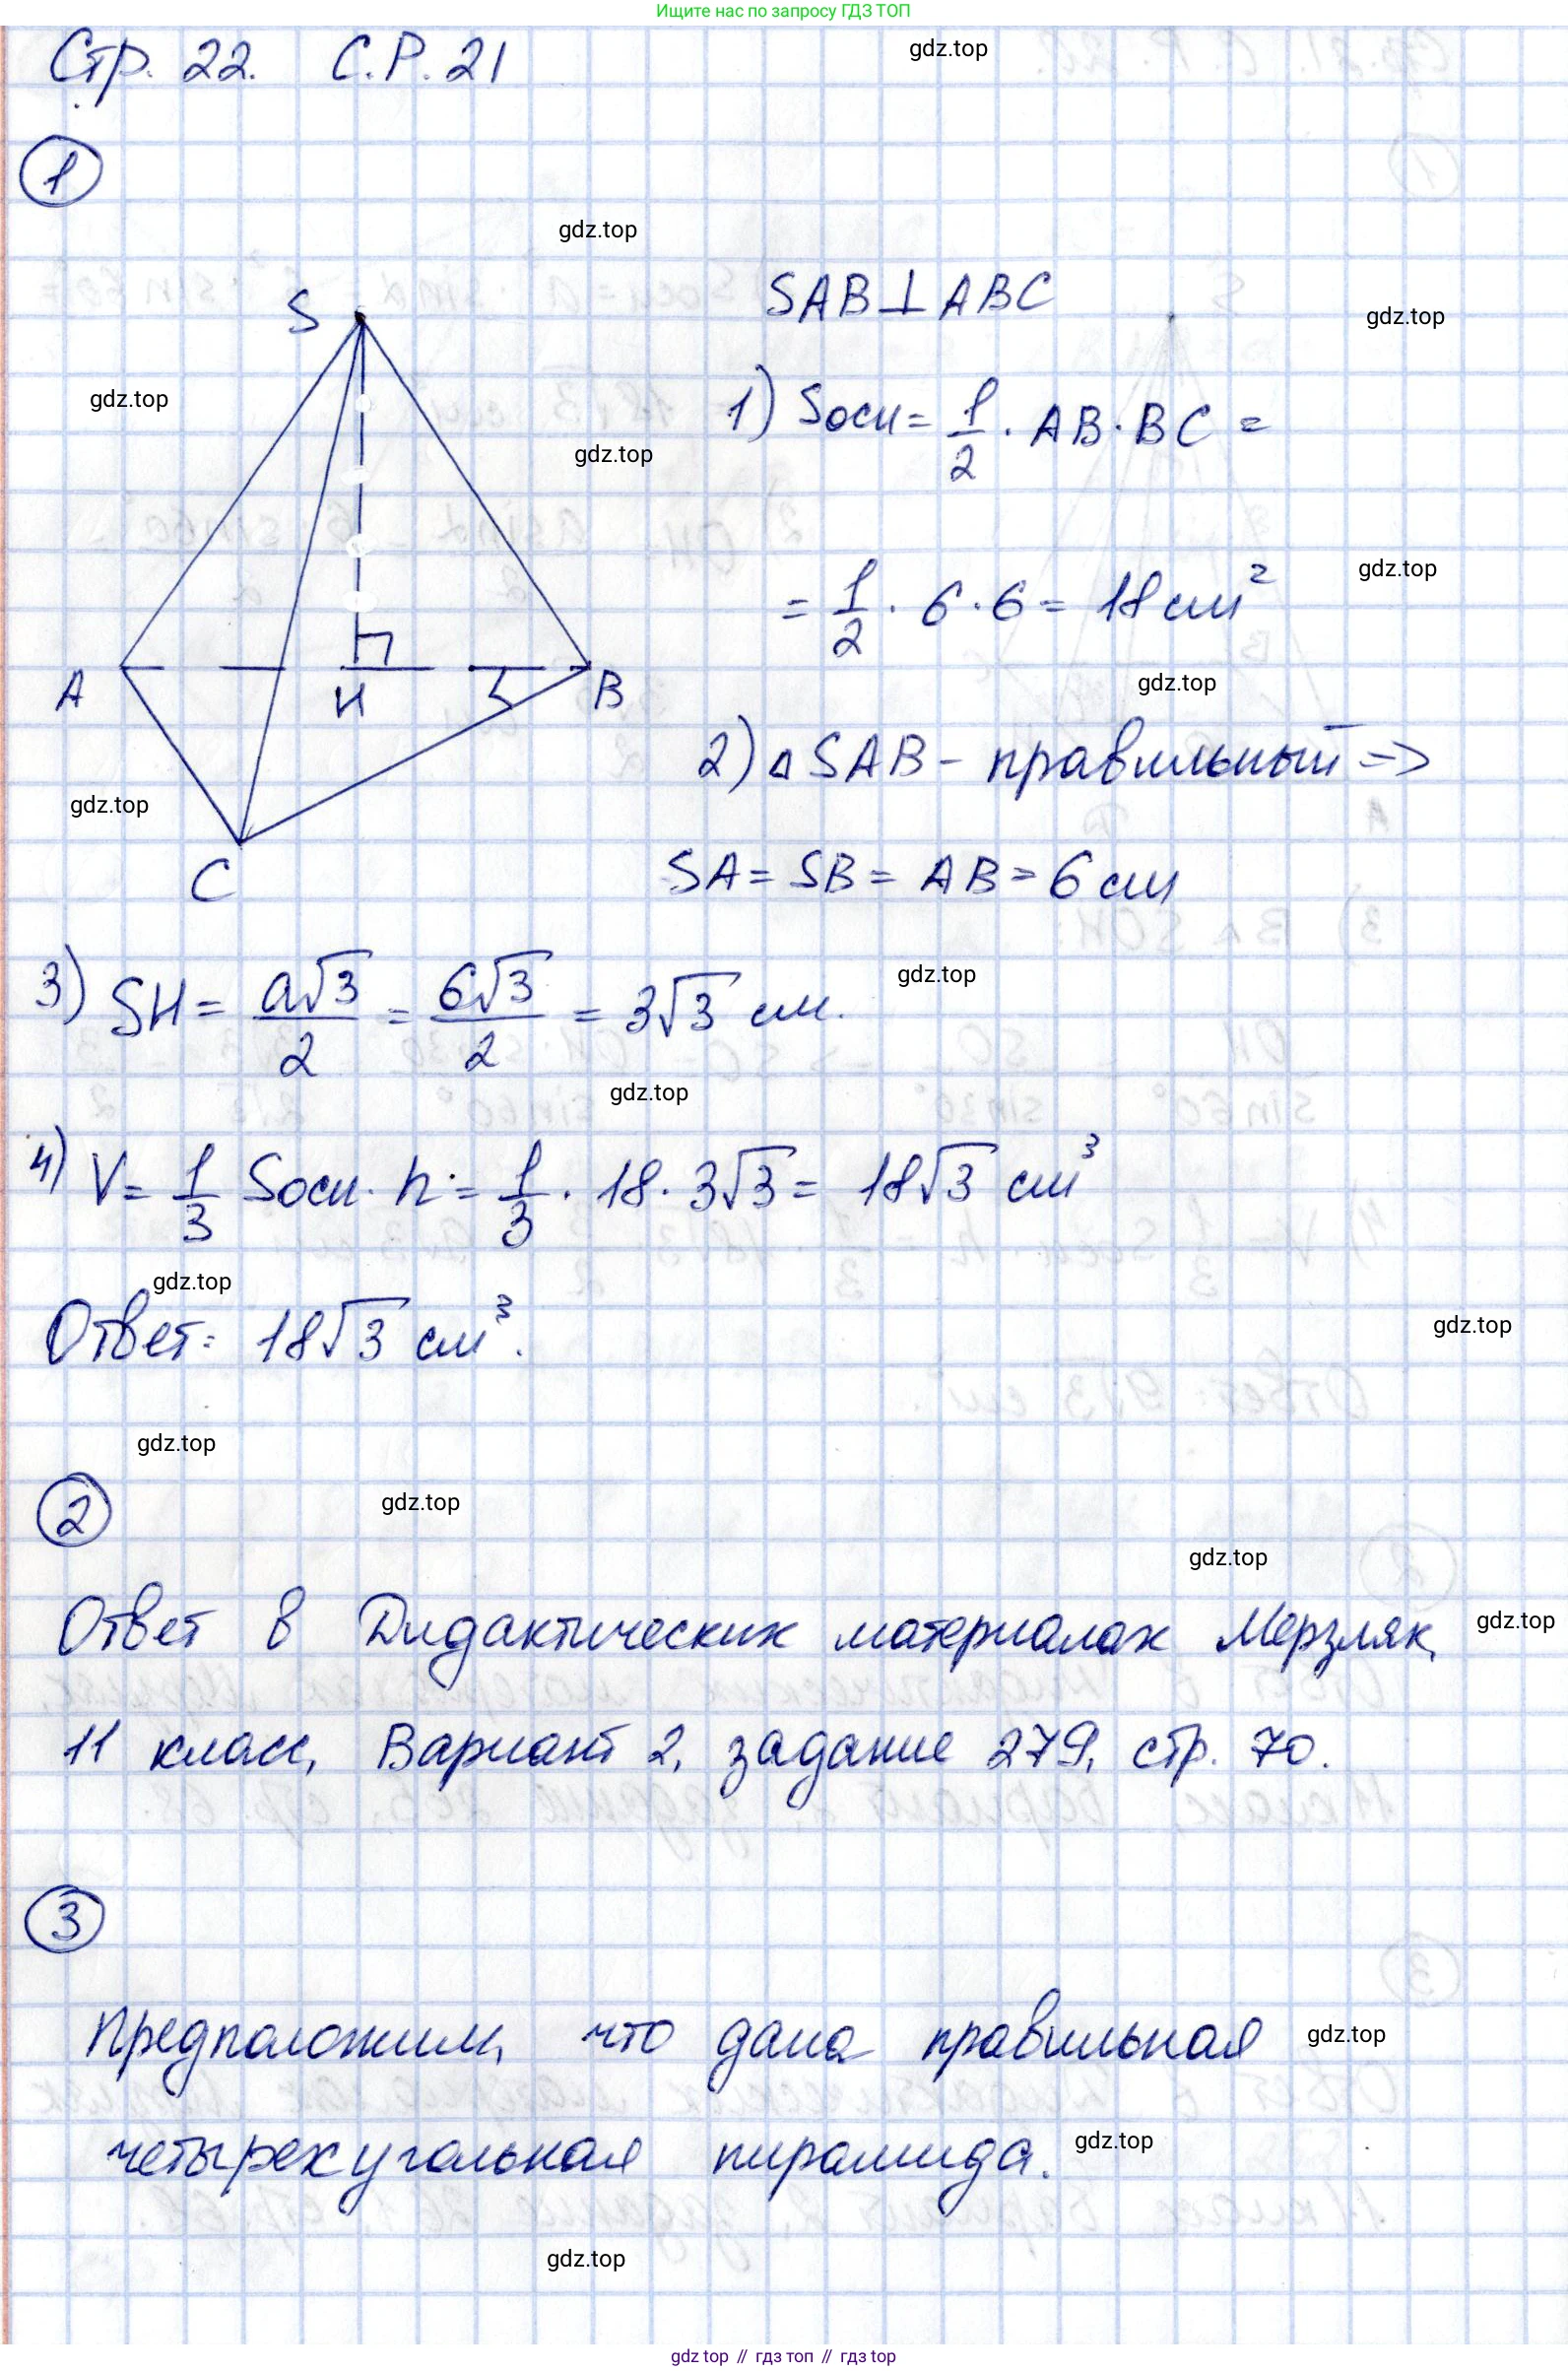 Ищите нас по запросу ГДЗ ТОП
Стр. 22. С.Р. 21
gdz.top
1
gdz.top
S
SAB ⊥ ABC
gdz.top
gdz.top
1) Sосн = 1/2 · AB · BC =
gdz.top
= 1/2 · 6 · 6 = 18 см²
gdz.top
A H B
gdz.top
2) △ SAB - правильный =>
gdz.top
C
SA = SB = AB = 6 см
gdz.top
3) SH = a√3/2 = 6√3/2 = 3√3 см.
gdz.top
4) V = 1/3 Sосн · h = 1/3 · 18 · 3√3 = 18√3 см³
gdz.top
Ответ: 18√3 см³.
gdz.top
gdz.top
2
gdz.top
gdz.top
Ответ в Дидактических материалах Мерзляк,
gdz.top
11 класс, Вариант 2, задание 279, стр. 70.
3
Предположим, что дана правильная
gdz.top
четырехугольная пирамида.
gdz.top
gdz.top
gdz top // гдз топ // гдз top